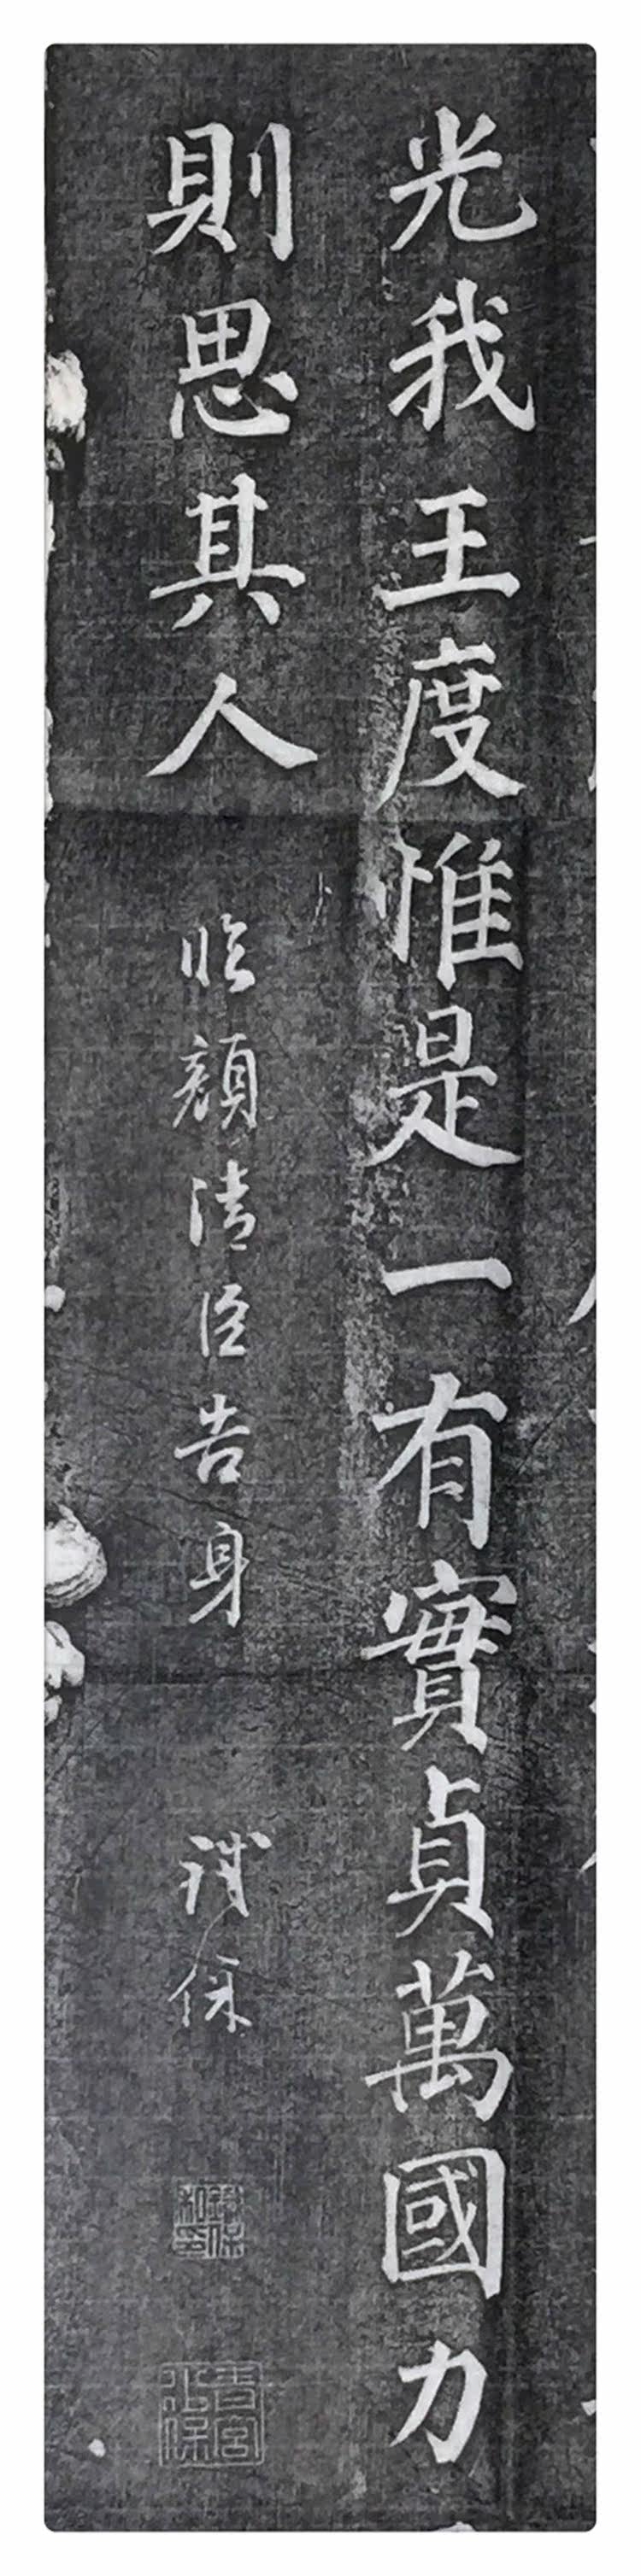 光我王度惟是一有實貞萬國力
則思其人
臨顏清臣告身
鐵保